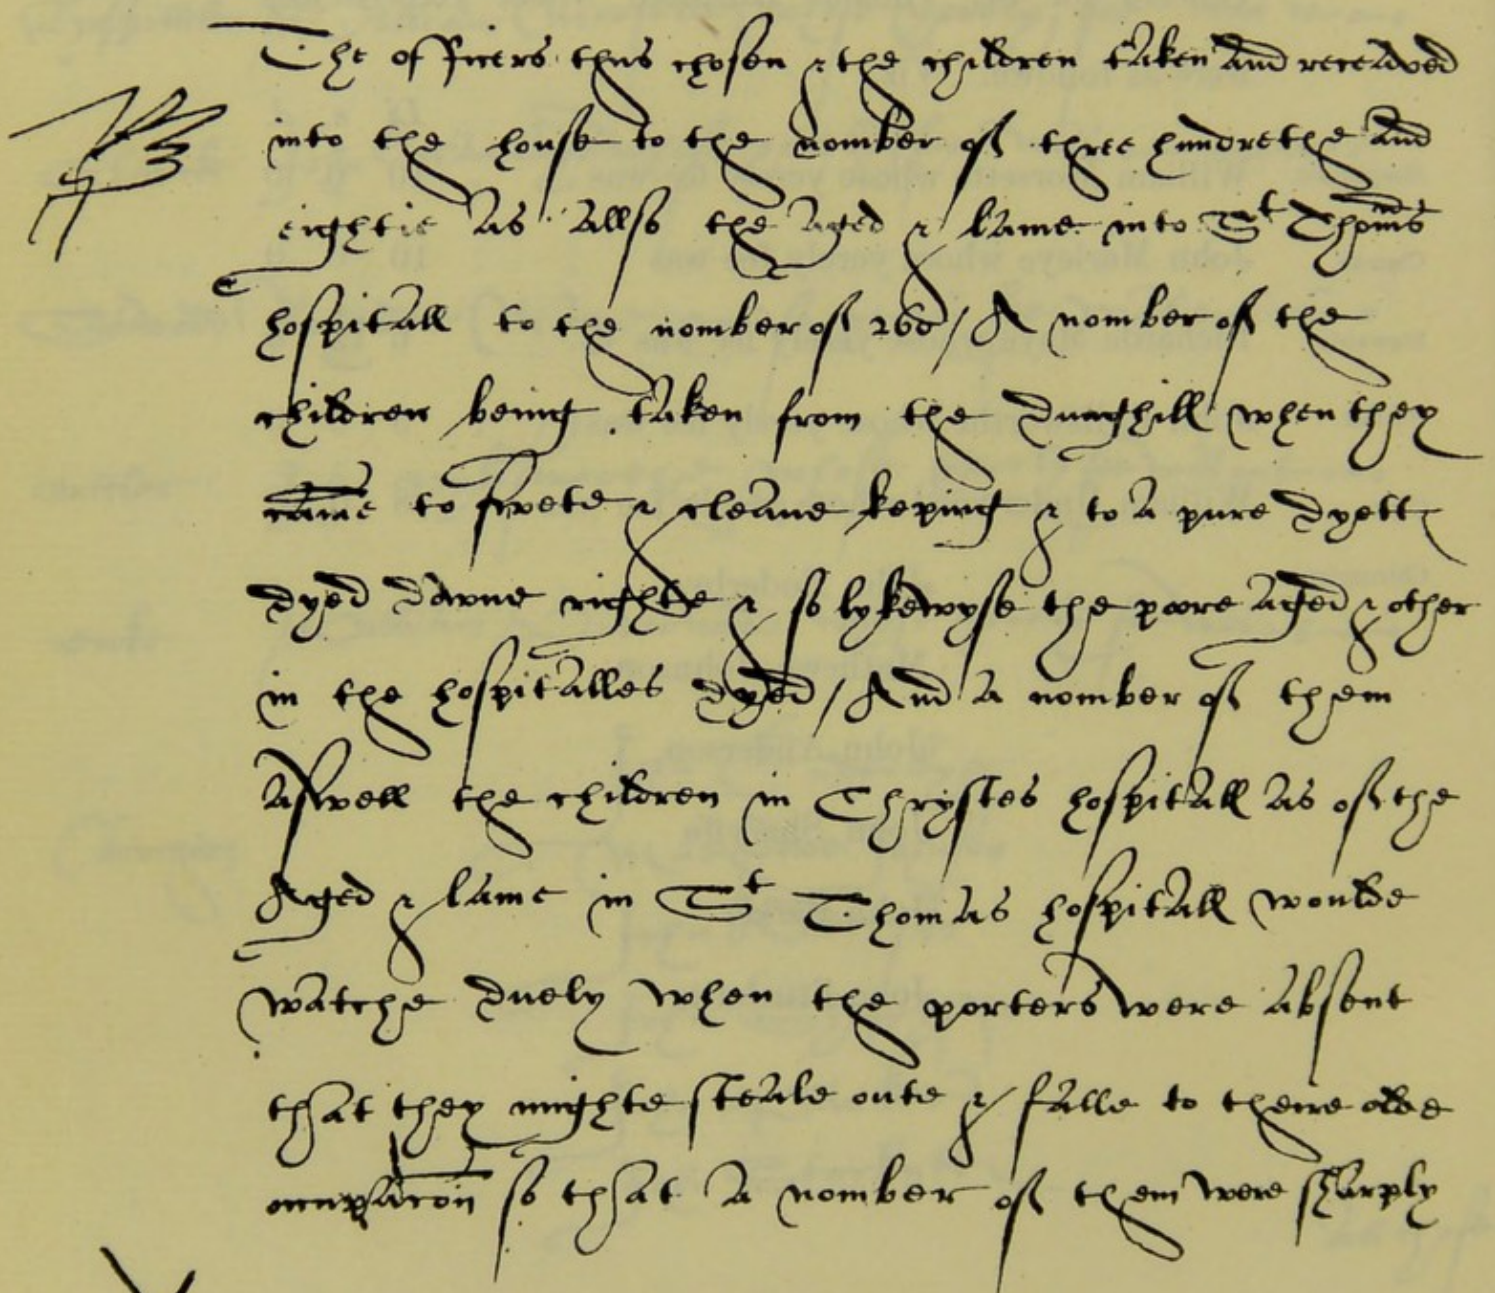 The officers thus chosen & the children taken and receaved
into the house to the nomber of three hundrethe and
eightie as allso the aged & lame into St Thoms
hospitall to the nomber of 260 / A nomber of the
children being taken from the dunghill when they
came to swete & cleane keping & to a pure dyett
dyed downe righte & so lykewyse the poore aged & other
in the hospitalles dyed / And a nomber of them
aswell the children in Chrystes hospitall as of the
Aged & lame in St Thomas hospitall woulde
watche duely when the porters were absent
that they mighte steale oute & falle to theire olde
occupacon so that a nomber of them were sharply